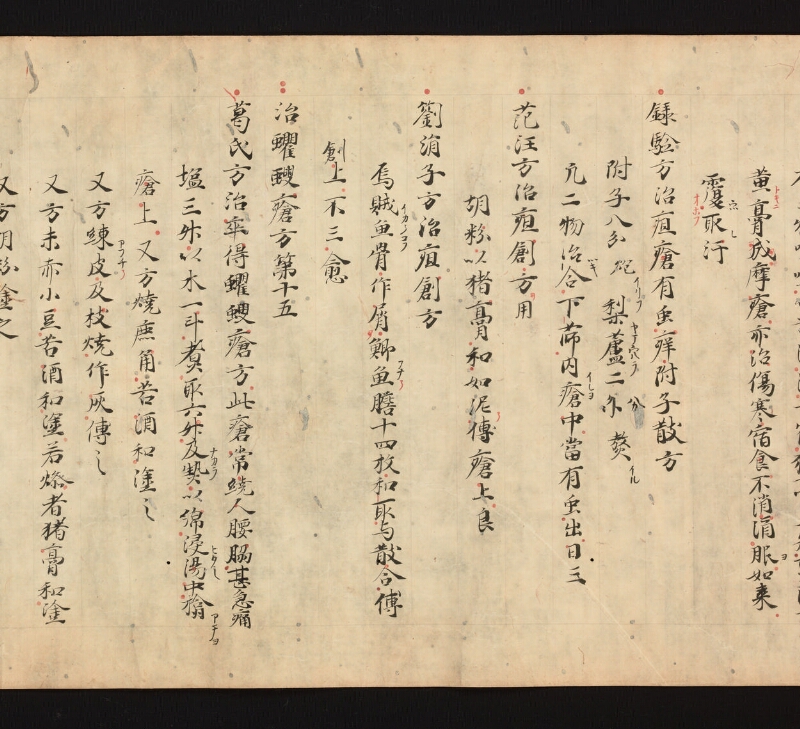 黄膏成摩瘡亦治傷寒宿食不消涓服如棗
覆取汗
録驗方治疽瘡有虫痒附子散方
附子八分炮 梨蘆二分 熬
凢二物治合下篩内瘡中當有虫出日三
范汪方治疽創方用
胡粉以猪膏和如泥愽瘡上良
劉涓子方治疽創方
烏賊魚骨作屑鯽魚膽十四枚和取与散合愽
創上不三愈
治蠷螋瘡方第十五
葛氏方治卒得蠷螋瘡方此瘡常繞人腰脇甚急痛
塩三升以水一斗煑取六升及𤍠以綿浸湯中搨
瘡上 又方燒鹿角苦酒和塗之
又方練皮及枝燒作灰傅之
又方末赤小豆苦酒和塗若燥者猪膏和塗
又方胡粉塗之